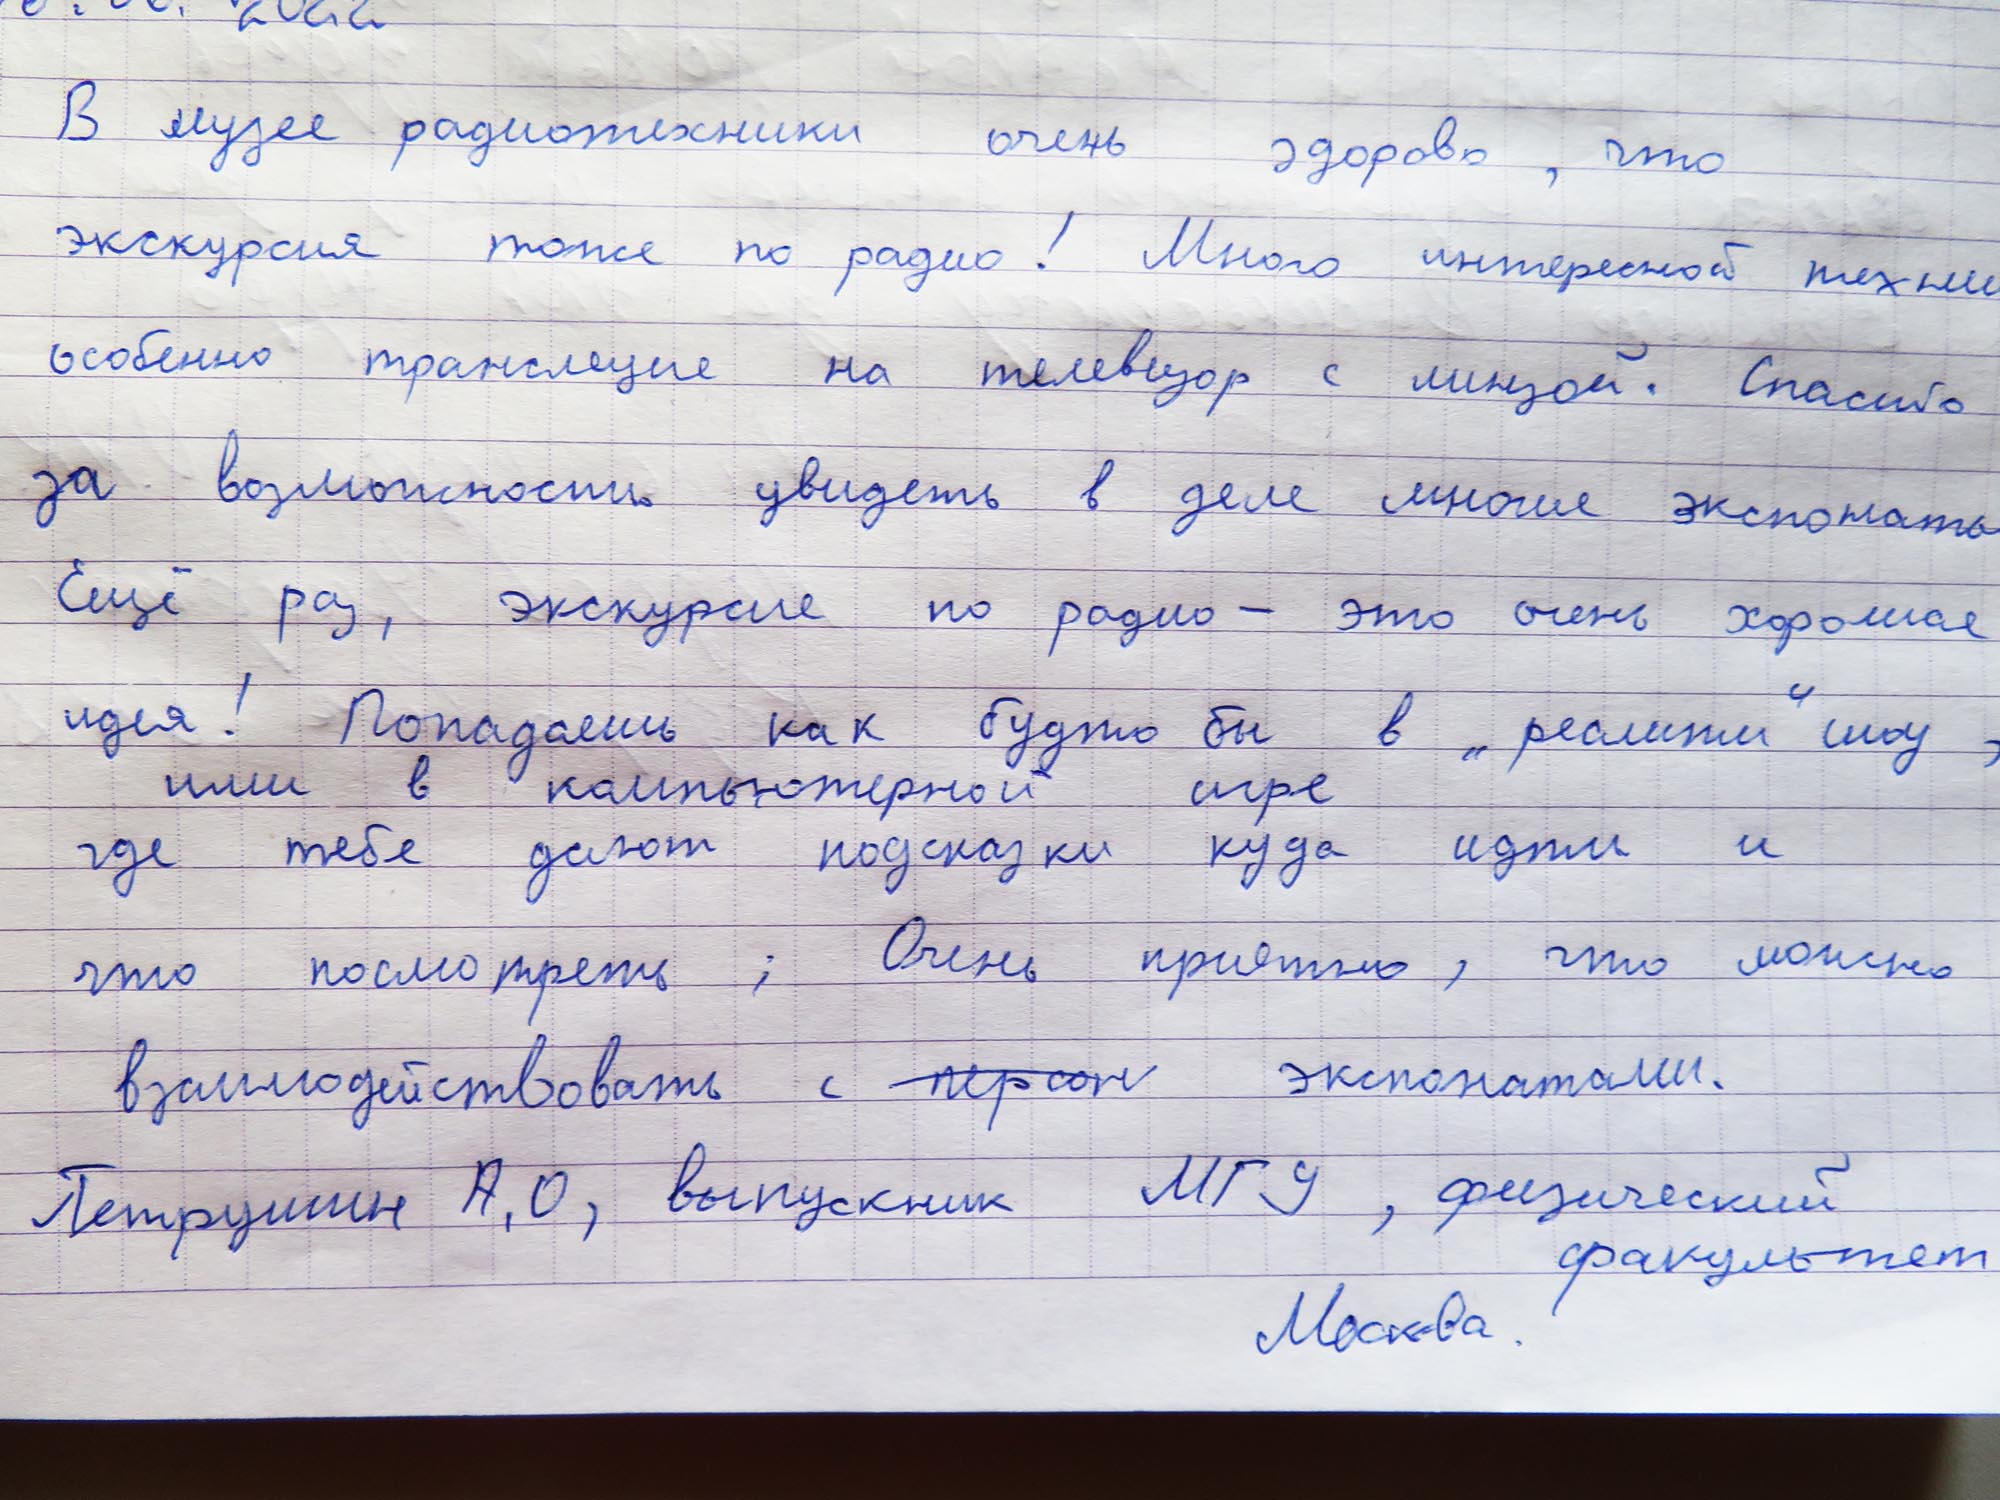 2022
В музее радиотехники очень здорово, что
экскурсия тоже по радио! Много интересной техни
особенно трансляция на телевизор с линзой. Спасибо
за возможность увидеть в деле многие экспонаты
Ещё раз, экскурсия по радио – это очень хорошая
идея! Попадаешь как будто бы в „реалити“ шоу,
или в компьютерной игре
где тебе дают подсказки куда идти и
что посмотреть; Очень приятно, что можно
взаимодействовать с персон экспонатами.
Петрушин А.О, выпускник МГУ, физический
факультет
Москва.